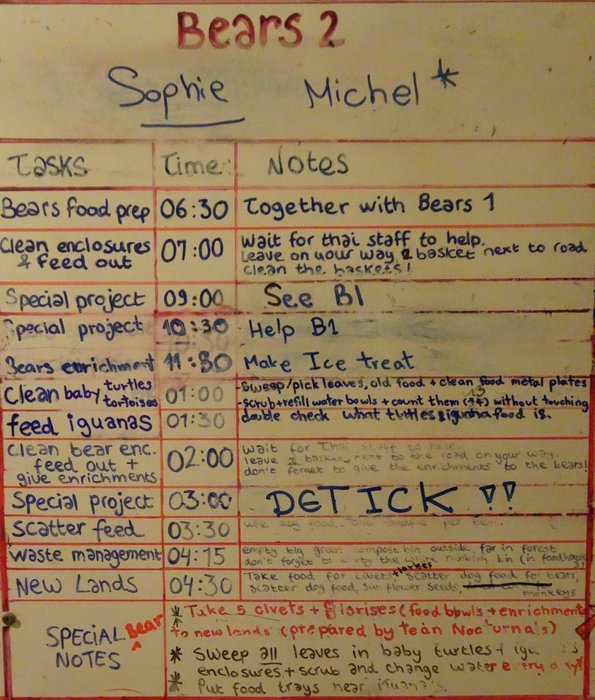 Bears 2
Sophie Michel*
Tasks Time Notes
Bears food prep 06:30 Together with Bears 1
Clean enclosures & feed out 07:00 Wait for thai staff to help.
Leave on your way 2 basket next to road
clean the baskets!
Special project 09:00 See B1
Special project 10:30 Help B1
Bears enrichment 11:30 Make Ice treat
Clean baby turtles tortoises 01:00 -Sweep/pick leaves, old food + clean food metal plates
-scrub+refill water bowls + count them without touching
feed iguanas 01:30 double check what turtles iguana food is.
Clean bear enc. feed out + give enrichments 02:00 wait for Thai staff to help.
leave 2 baskets next to the road on your way.
don't forget to give the enrichments to the bears!
Special project 03:00 DETICK !!
Scatter feed 03:30 use dog food. per bear.
Waste management 04:15 empty big green compost bin outside. far in forest
don't forget to empty the rubbish bin
New Lands 04:30 Take food for civets + glorises scatter dog food for bears,
scatter dog food, sun flower seeds, monkeys
SPECIAL Bear NOTES
* Take 5 civets + glorises (food bowls + enrichments
to newlands (prepared by team Nocturnals)
* Sweep all leaves in baby turtles +
enclosures + scrub and change water every day
* Put food trays near iguana's.